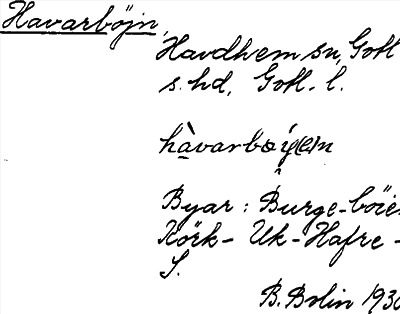 Havarböjn,
Havdhem sn, Gotl
s. hd, Gotl. l.
hàvarbɷy(e)n
Byar: Burge-böie
Rörk- Uk- Hafre -
S.
B. Bolin 1930